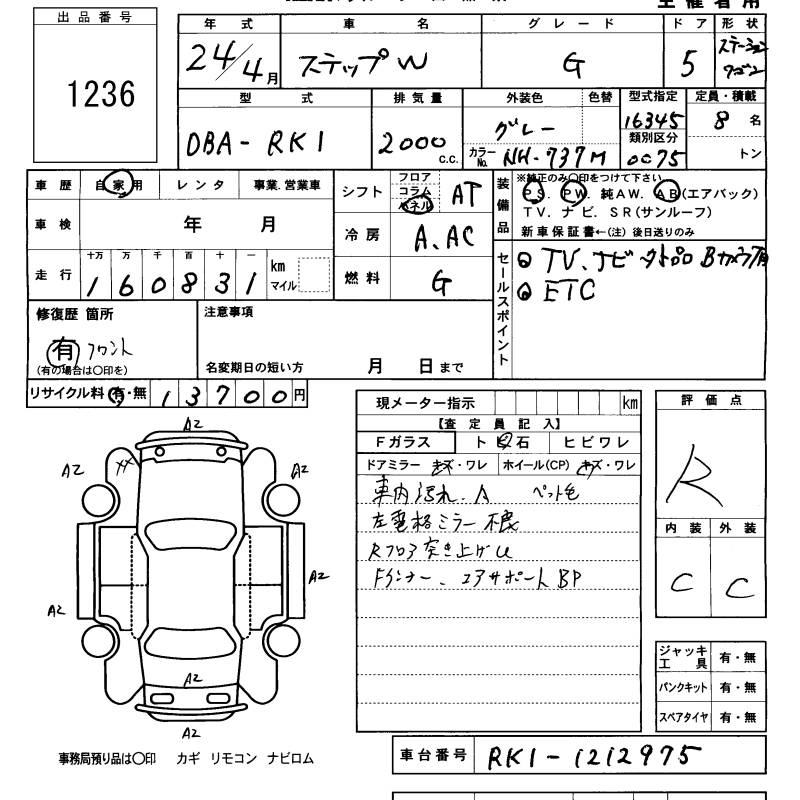 主催者用
出品番号
1236
年式
24/4月
車名
ステップW
グレード
G
ドア
5
形状
ステーション
ワゴン
型式
DBA-RK1
排気量
2000 c.c.
外装色
グレー
色替
カラーNo. NH-737M
型式指定
16345
類別区分
0075
定員・積載
8名
トン
車歴 自家用 レンタ 事業.営業車
車検 年 月
走行 十万 万 千 百 十 一
160831 km
マイル
シフト フロア コラム パネル AT
冷房 A.AC
燃料 G
装備品
※純正のみ○印をつけて下さい
P.S. P.W. 純AW. AB(エアバック)
TV. ナビ. SR(サンルーフ)
新車保証書←(注) 後日送りのみ
セールスポイント
TV、ナビ
Bカメラ有
ETC
修復歴 箇所
有 フロント
(有の場合は○印を)
注意事項
名変期日の短い方 月 日まで
リサイクル料 有・無 13700円
現メーター指示 km
【査定員記入】
Fガラス ト飛石 ヒビワレ
ドアミラー キズ・ワレ ホイール(CP) キズ・ワレ
車内汚れ.A ペット毛
左電格ミラー不良
Rフロア突き上げU
Fインナー、コアサポートBP
評価点
R
内装 外装
C C
ジャッキ工具 有・無
パンクキット 有・無
スペアタイヤ 有・無
A2
A2
A2
A2
A2
A2
A2
XX
事務局預り品は○印 カギ リモコン ナビロム
車台番号 RK1-1212975